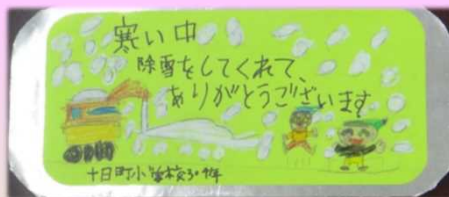 寒い中
除雪をしてくれて、
ありがとうございます
十日町小学校3年